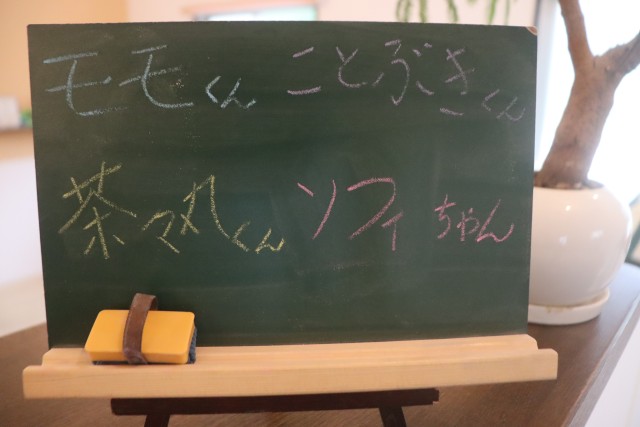 モモくん ことぶきくん
茶々丸くん ソフィちゃん